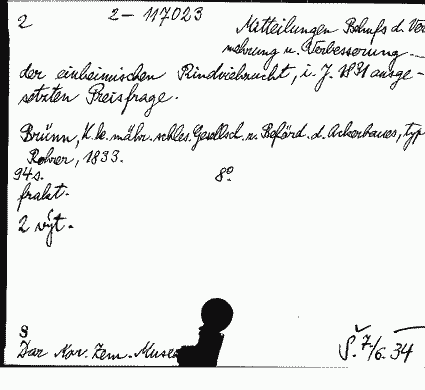 2 2-117023 Mitteilungen Behufs d. Ver
mehrung u. Verbesserung
der einheimischen Rindviehzucht, i. J. 1831 ausge-
setzten Preisfrage.
Brünn, K.k. mähr. schles. Gesellsch. z. Beförd. d. Ackerbaues, typ
Rohrer, 1833.
94 s. 8º
frakt.
2 výt.
§
Dar Mor. Zem. Musea
Š. 7/6. 34